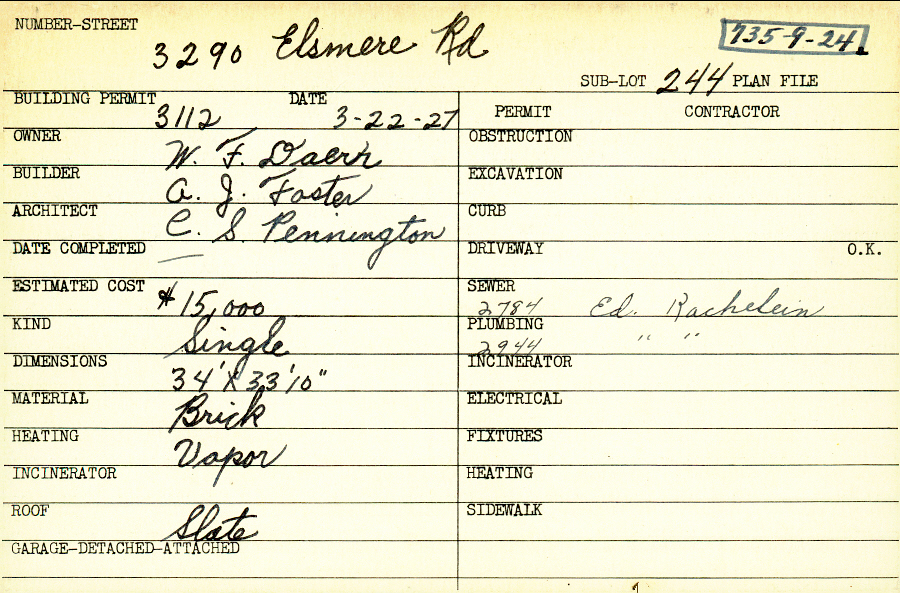 NUMBER-STREET 3290 Elsmere Rd 735-9-24
SUB-LOT 244 PLAN FILE
BUILDING PERMIT 3112 DATE 3-22-27
PERMIT CONTRACTOR
OWNER W. F. Daerr
OBSTRUCTION
BUILDER A. J. Foster
EXCAVATION
ARCHITECT C. S. Pennington
CURB
DATE COMPLETED —
DRIVEWAY O.K.
ESTIMATED COST $15,000
SEWER 2784 Ed. Rachelein
KIND Single
PLUMBING 2944 " "
DIMENSIONS 34' X 33'10"
INCINERATOR
MATERIAL Brick
ELECTRICAL
HEATING Vapor
FIXTURES
INCINERATOR
HEATING
ROOF Slate
SIDEWALK
GARAGE-DETACHED-ATTACHED